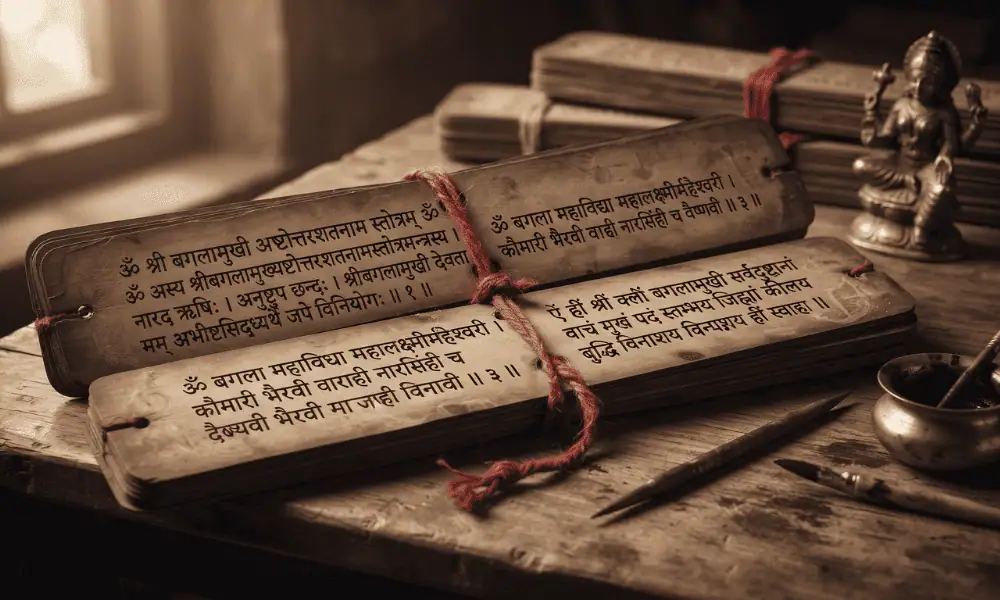 ॐ श्री बगलामुखी अष्टोत्तरशतनाम स्तोत्रम् ॐ
ॐ अस्य श्रीबगलामुख्यष्टोत्तरशतनामस्तोत्रमन्त्रस्य ।
नारद ऋषिः । अनुष्टुप छन्दः । श्रीबगलामुखी देवता
मम् अभीष्टसिद्ध्यर्थे जपे विनियोगः ॥ १ ॥
ॐ बगला महाविद्या महालक्ष्मीर्महेश्वरी ।
कौमारी भैरवी वाही नारसिंही च वैष्णवी ॥ ३ ॥
ॐ बगला महाविघा महालक्ष्मीर्महेश्वरी ।
कौमारी भैरवी वाराही नारसिंही च
भैरवी मा जाही विनावी ॥ ३ ॥
ऐं हीं श्रीं क्लीं बगलामुखी सर्वदुष्टानां
वाचं मुखं पदं स्तम्भय जिह्वां कीलय
बुद्धि विनाशय हीं स्वाहा ॥